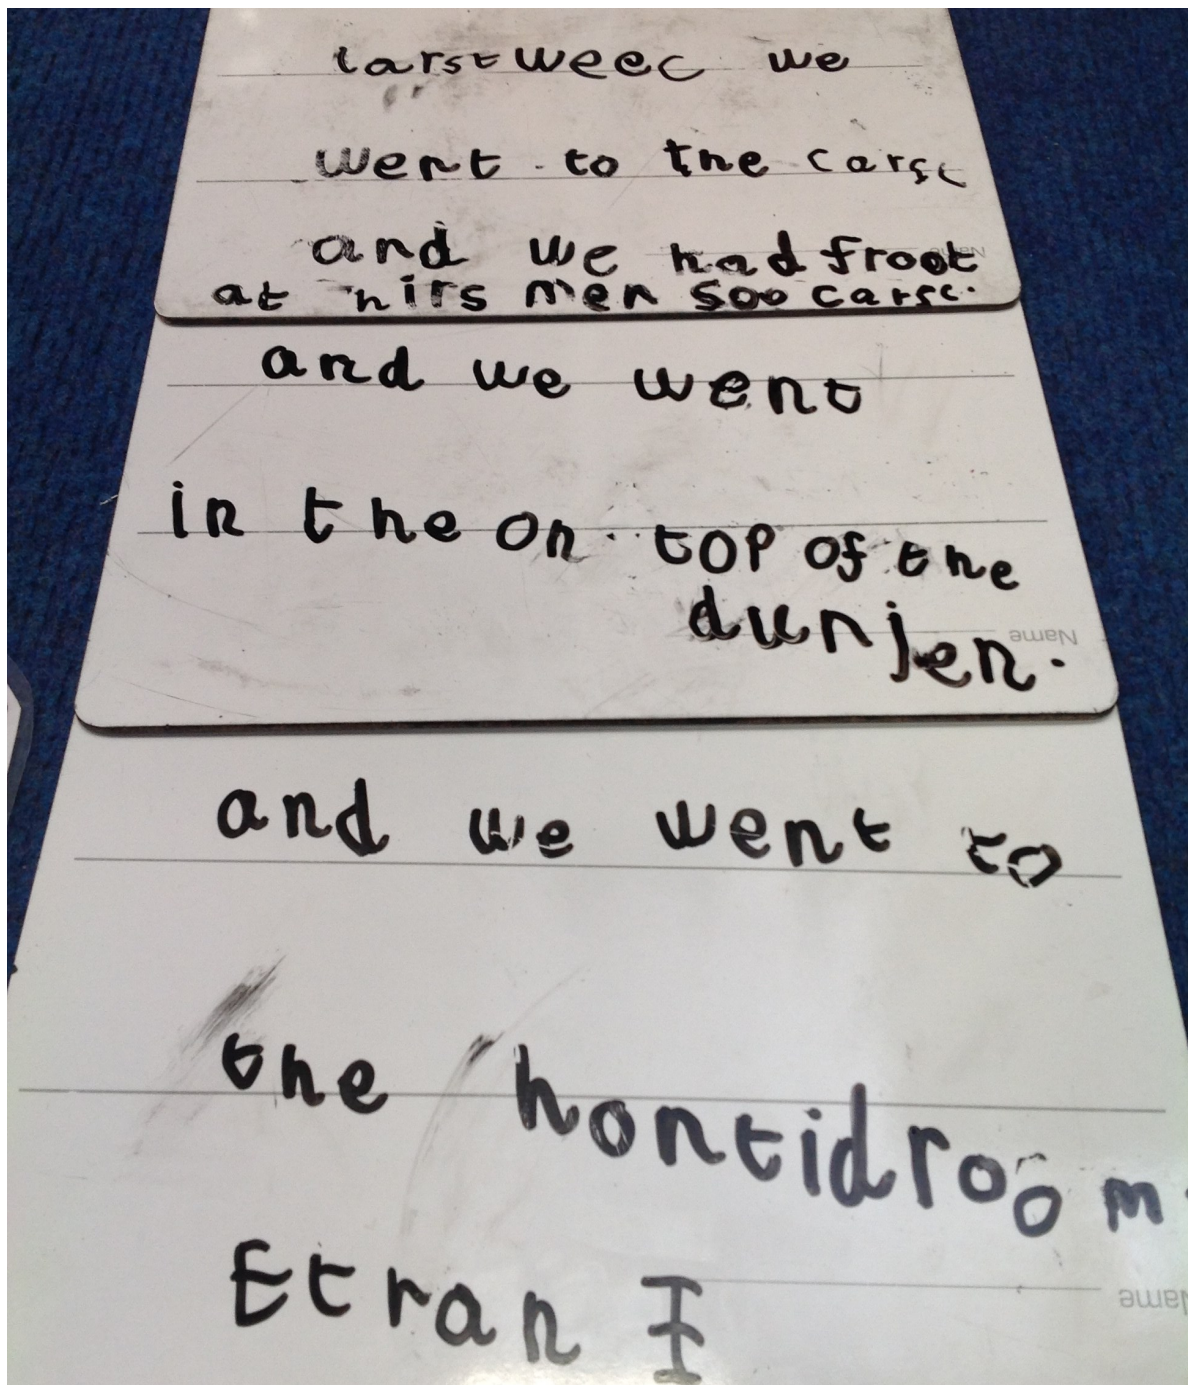 larst weec we
went to the carsc
and we had froot
at hirs men soo carsc.
and we went
in the on top of the
dunjen.
and we went to
the hontidroom.
Etran I
Name
Name
Name